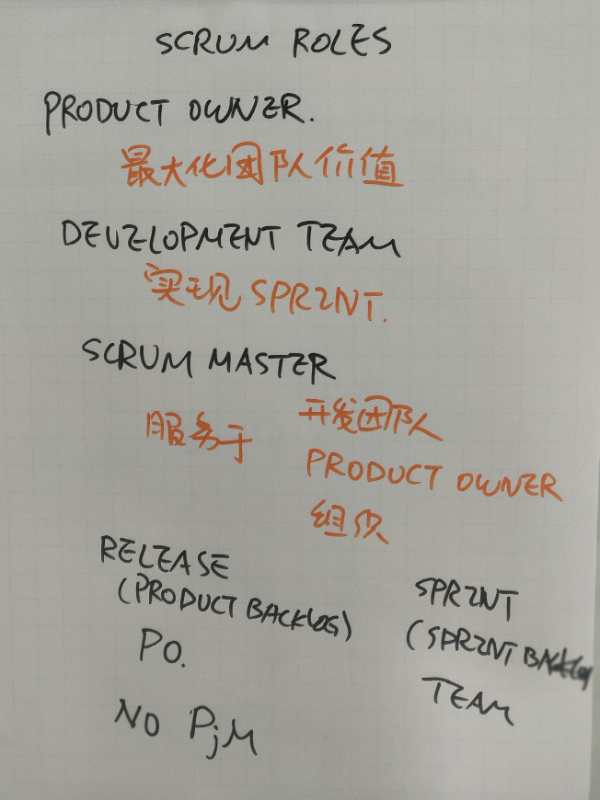 SCRUM ROLES
PRODUCT OWNER.
最大化团队价值
DEVELOPMENT TEAM
实现 SPRINT.
SCRUM MASTER
服务于
开发团队
PRODUCT OWNER
组织
RELEASE
(PRODUCT BACKLOG)
PO.
NO PjM
SPRINT
(SPRINT BACKLOG
TEAM